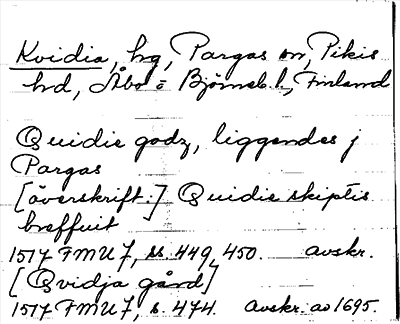 Kvidia, hg, Pargas sn, Pikis
hrd, Åbo = Björneb. l., Finland
Quidie godz, liggendes j
Pargas
[överskrift:] Quidie skiptis
breffuit
1517 FMU 7, ss. 449, 450. avskr.
[Qvidja gård]
1517 FMU 7, s. 474. Avskr. av 1695.